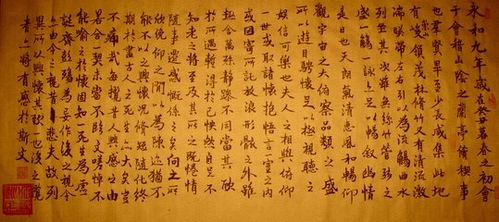 永和九年歲在癸丑暮春之初會
于會稽山陰之蘭亭脩禊事
也羣賢畢至少長咸集此地
有崇山峻領茂林脩竹又有清流激
湍暎帶左右引以為流觴曲水
列坐其次雖無絲竹管弦之
盛一觴一詠亦足以暢敘幽情
是日也天朗氣清惠風和暢仰
觀宇宙之大俯察品類之盛
所以遊目騁懷足以極視聽之
娛信可樂也夫人之相與俯仰
一世或取諸懷抱悟言一室之內
或因寄所託放浪形骸之外雖
趣舍萬殊靜躁不同當其欣
於所遇暫得於己怏然自足不
知老之將至及其所之既惓情
隨事遷感慨係之矣向之所
欣俛仰之間以為陳迹猶不
能不以之興懷況脩短隨化終
期於盡古人云死生亦大矣豈
不痛哉每攬昔人興感之由
若合一契未嘗不臨文嗟悼不
能喻之於懷固知一死生為虛
誕齊彭殤為妄作後之視今
亦由今之視昔悲夫故列
異所以興懷其致一也後之攬
者亦將有感於斯文